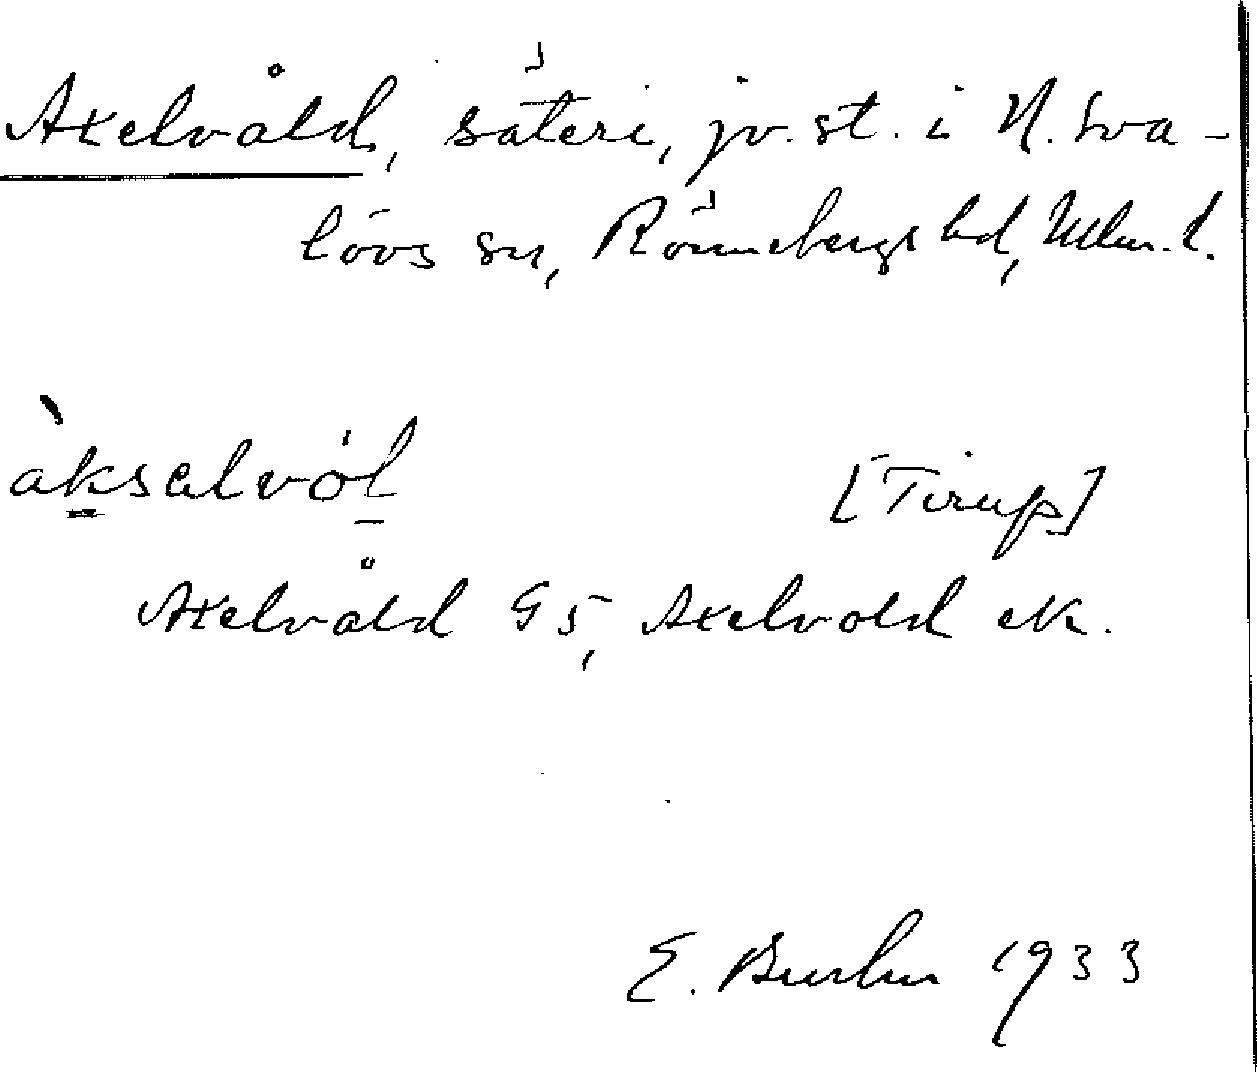 Axelvåld, säteri, jv.st. i N. Sva-
lövs sn, Rönnebergs hd, Mlm.l.
àksalvòl [Tirup]
Axelvåld G5, Axelvold ek.
E. 1933